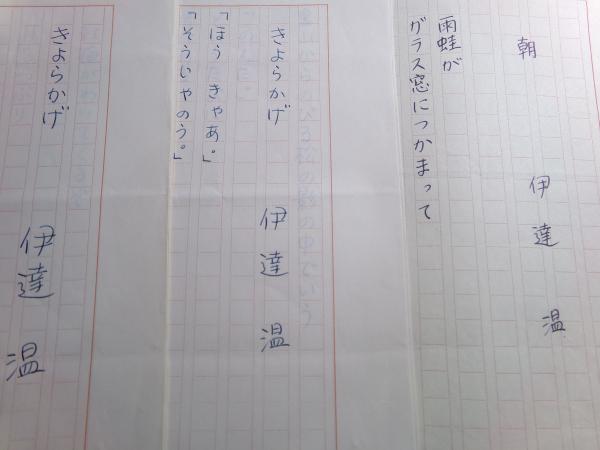 朝
伊達 温
雨蛙が
ガラス窓につかまって
きよらかげ
伊達 温
「ほうきゃあ。」
「そうじゃのう。」
きよらかげ
伊達 温